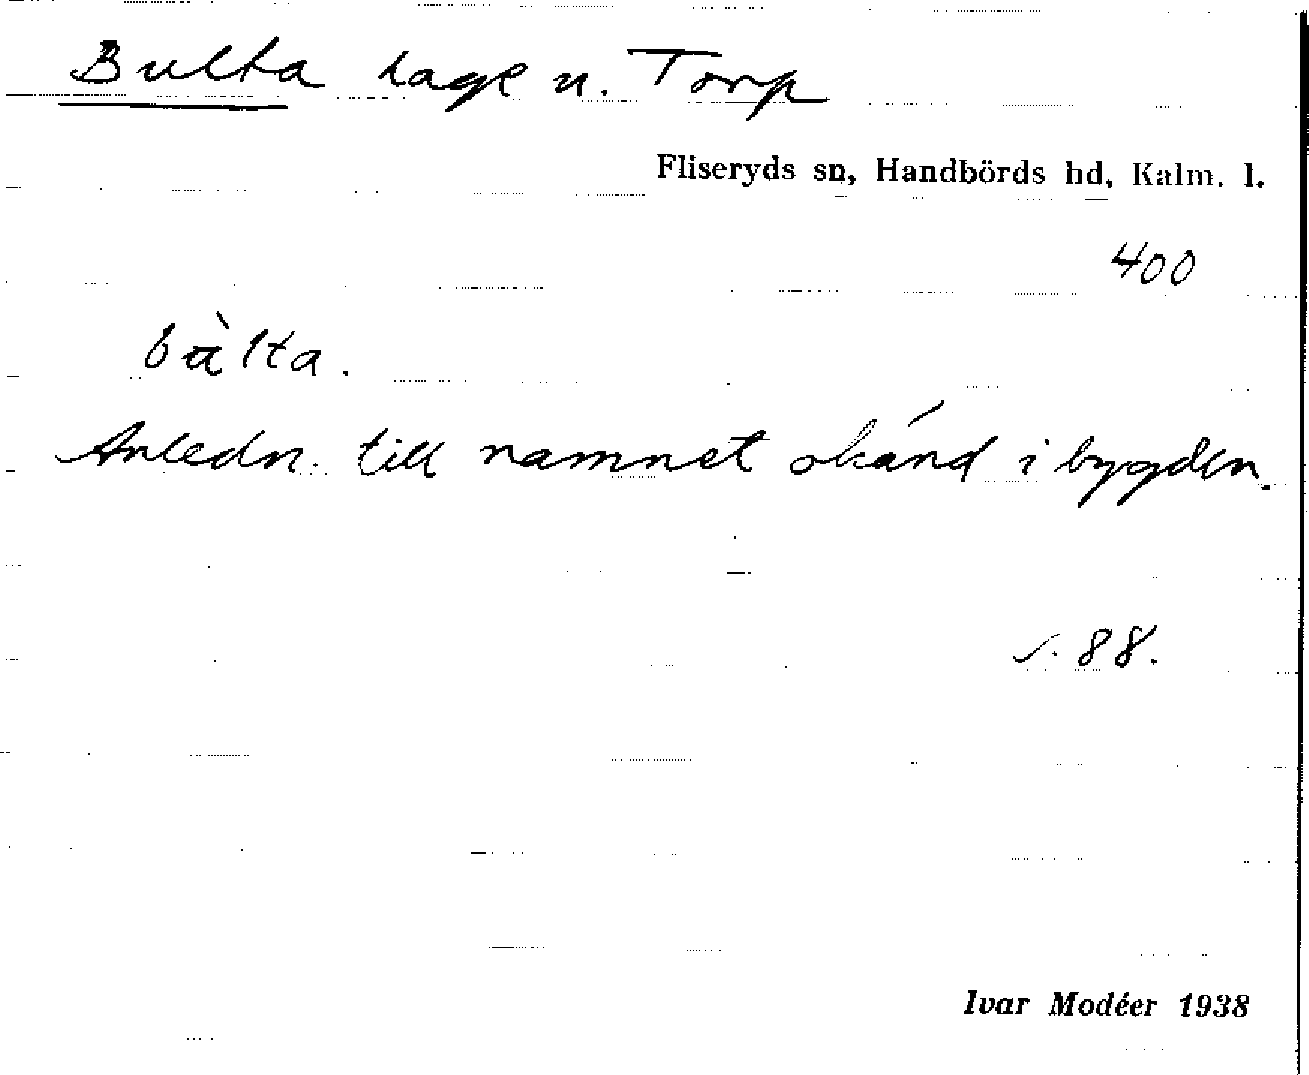 Bulta hage u. Torp
Fliseryds sn, Handbörds hd, Kalm. l.
400
bùlta.
Anledn. till namnet okänd i bygden.
s. 88.
Ivar Modéer 1938